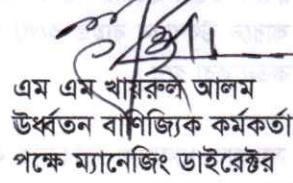 এম এম খায়রুল আলম
উর্ধ্বতন বাণিজ্যিক কর্মকর্তা
পক্ষে ম্যানেজিং ডাইরেক্টর